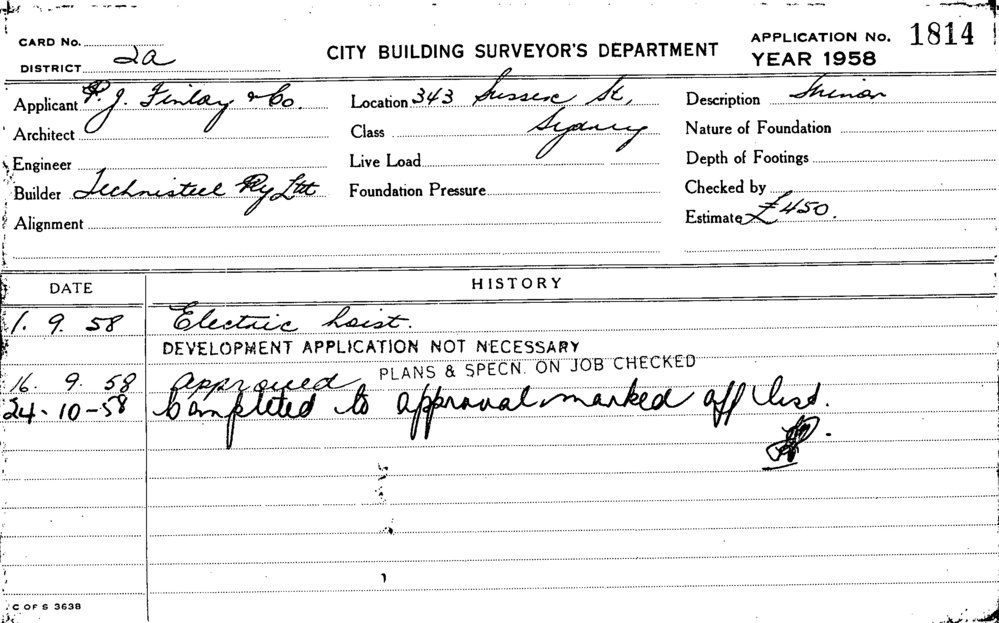 CARD No.
DISTRICT 2a
CITY BUILDING SURVEYOR'S DEPARTMENT
APPLICATION No. 1814
YEAR 1958
Applicant P. J. Finlay & Co.
Location 343 Sussex St,
Description Minor
Architect
Class Sydney
Nature of Foundation
Engineer
Live Load
Depth of Footings
Builder Technisteel Pty Ltd
Foundation Pressure
Checked by
Alignment
Estimate £450.
DATE
HISTORY
1. 9. 58 Electric hoist.
DEVELOPMENT APPLICATION NOT NECESSARY
16. 9. 58 Approved PLANS & SPECN. ON JOB CHECKED
24-10-58 Completed to approval marked off list.
C OF S 3638